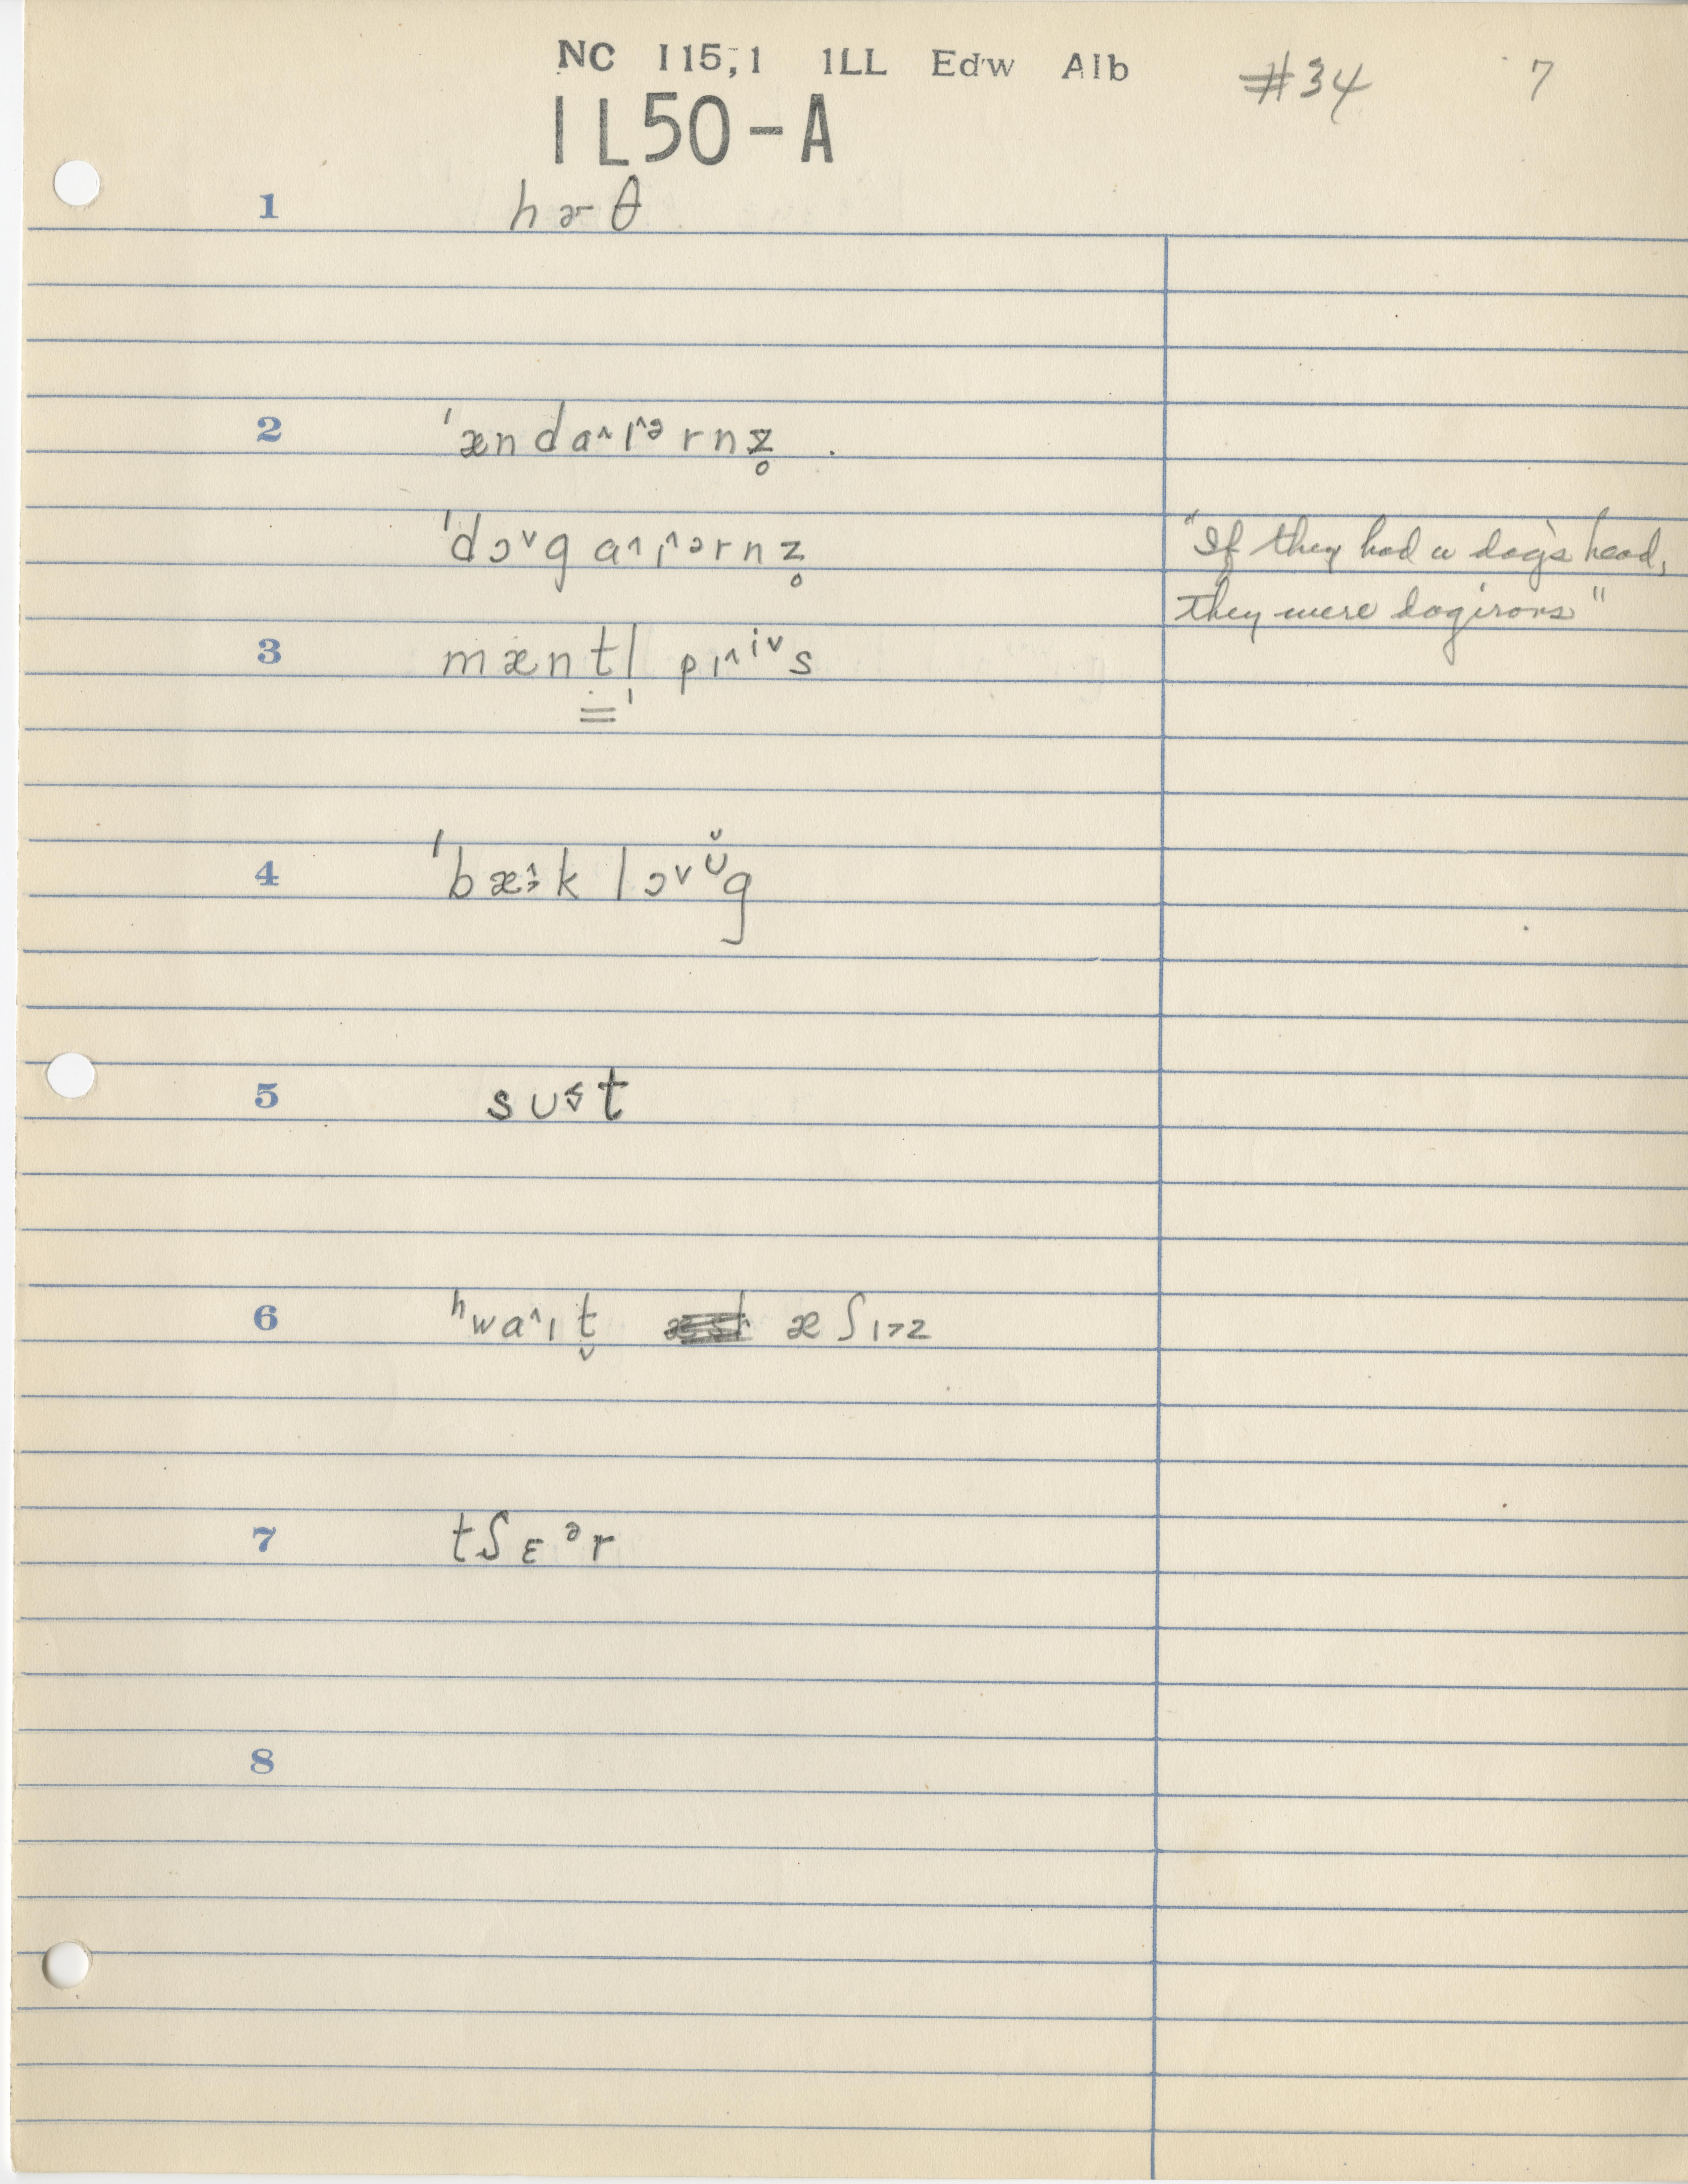 NC 115,1 1LL Edw Alb #34 7
IL50-A
1 hɚθ
2 ˈænda˄ɪ˄ᵊrnz̥
ˈdɔ˅g a˄ɪ˄ərnz̥ "If they had a dog's head,
they were dogirons"
3 mæntl̩ pɪ˄ⁱ˅s
4 ˈbæ˄k lɔ˅ᶷ̌g
5 sʊt
6 ʰwa˄ɪt̬ æʃɪ˃z
7 tʃɛᵊr
8